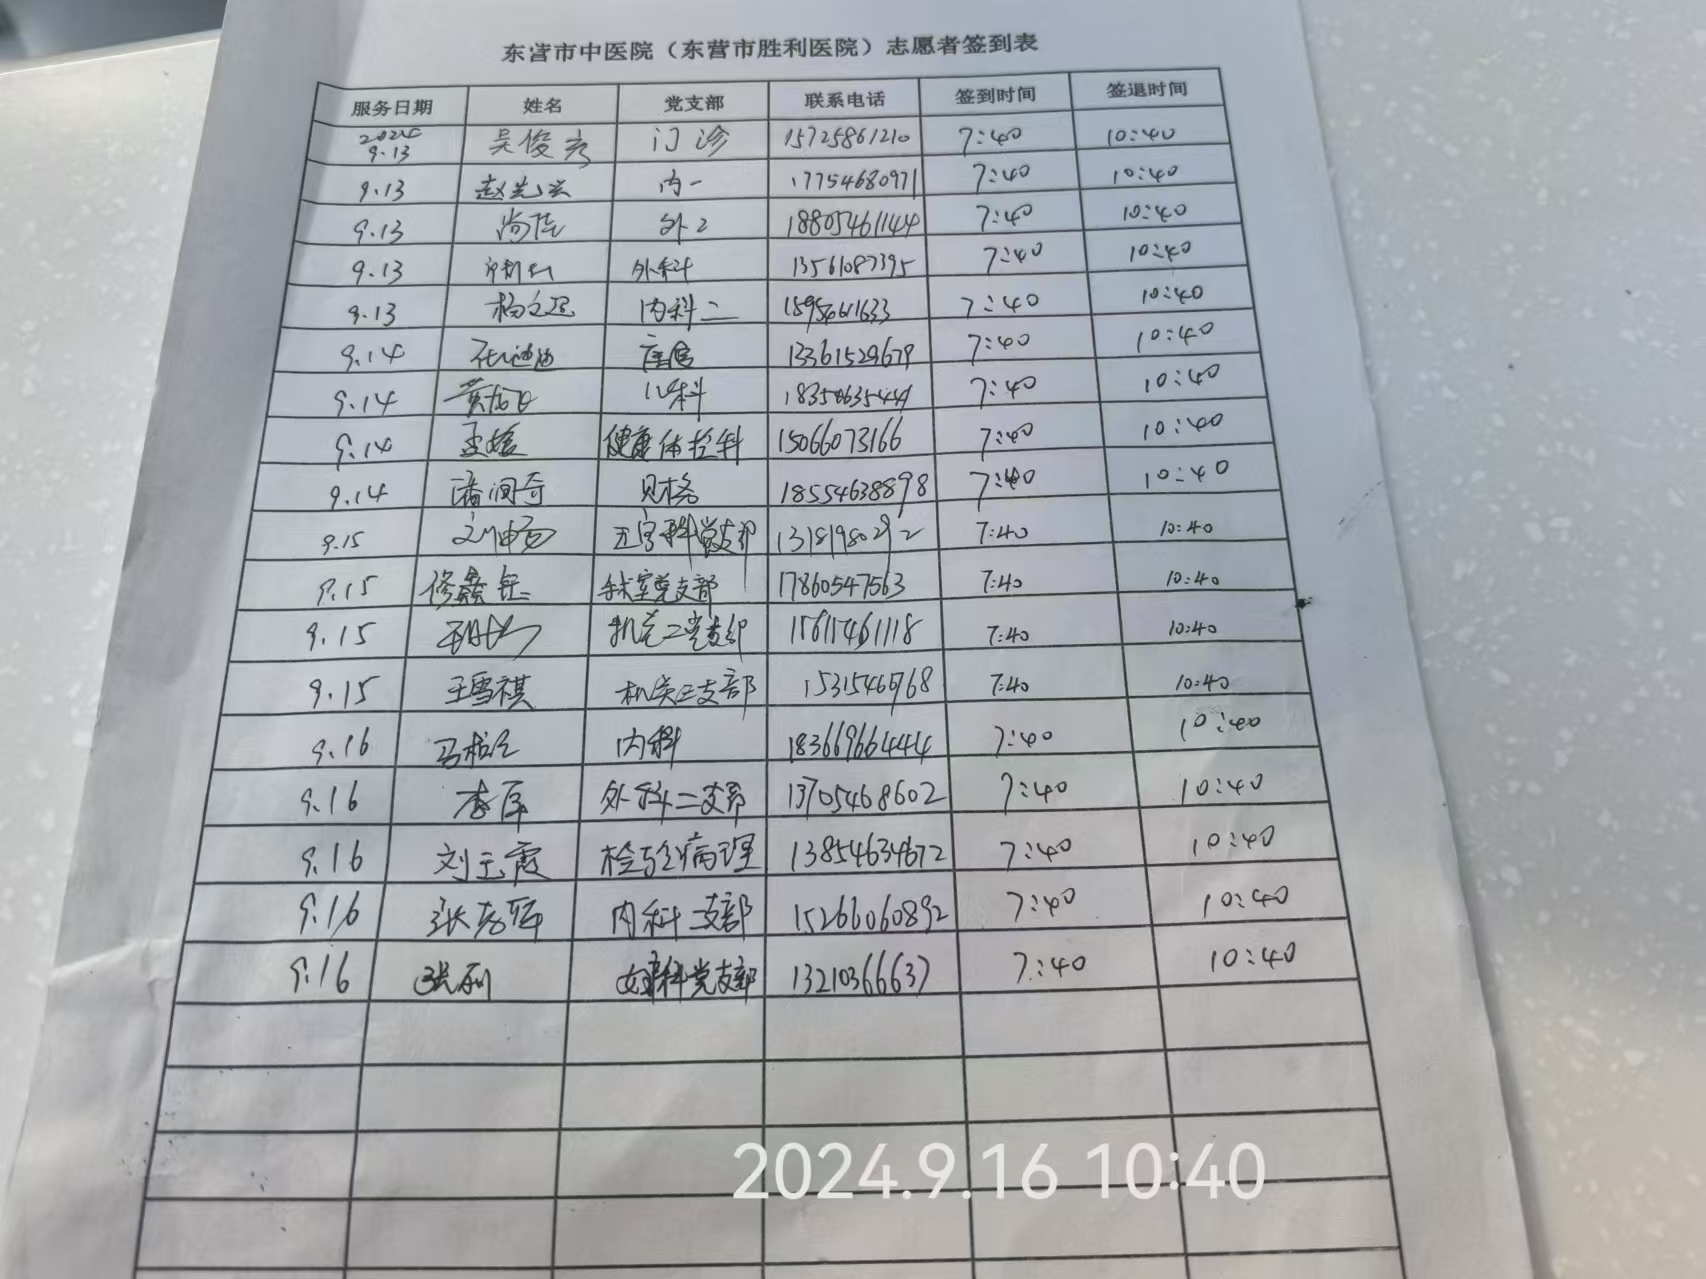 东营市中医院（东营市胜利医院）志愿者签到表
服务日期 姓名 党支部 联系电话 签到时间 签退时间
2024 9.13 吴俊彦 门诊 15725861210 7:40 10:40
9.13 内一 17754680971 7:40 10:40
9.13 尚佳 外2 18805461144 7:40 10:40
9.13 外科 13561087395 7:40 10:40
9.13 内科二 7:40 10:40
9.14 13361529679 7:40 10:40
9.14 儿科 7:40 10:40
9.14 健康体检科 15066073166 7:40 10:40
9.14 潘润奇 财务 18554638898 7:40 10:40
9.15 刘申 党支部 7:40 10:40
9.15 修鑫钰 手术室党支部 17860547563 7:40 10:40
9.15 机关二党支部 7:40 10:40
9.15 王雪祺 机关三支部 7:40 10:40
9.16 内科 18366966444 7:40 10:40
9.16 外科二支部 13705468602 7:40 10:40
9.16 刘玉霞 检验病理 13854634672 7:40 10:40
9.16 内科二支部 15266060892 7:40 10:40
9.16 党支部 13210366637 7:40 10:40
2024.9.16 10:40